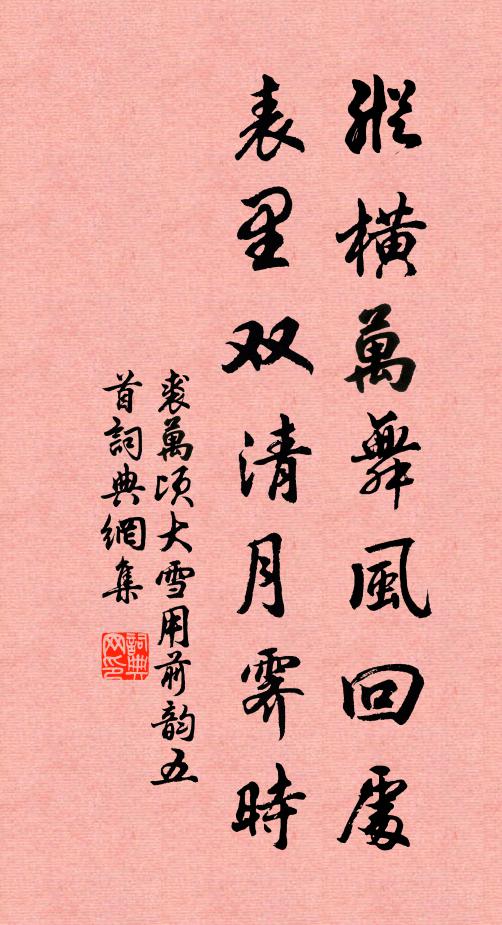 縱橫萬舞風回處
表里双清月霽時
裘萬頃大雪用前韵五
首詞典網集
詞典网印